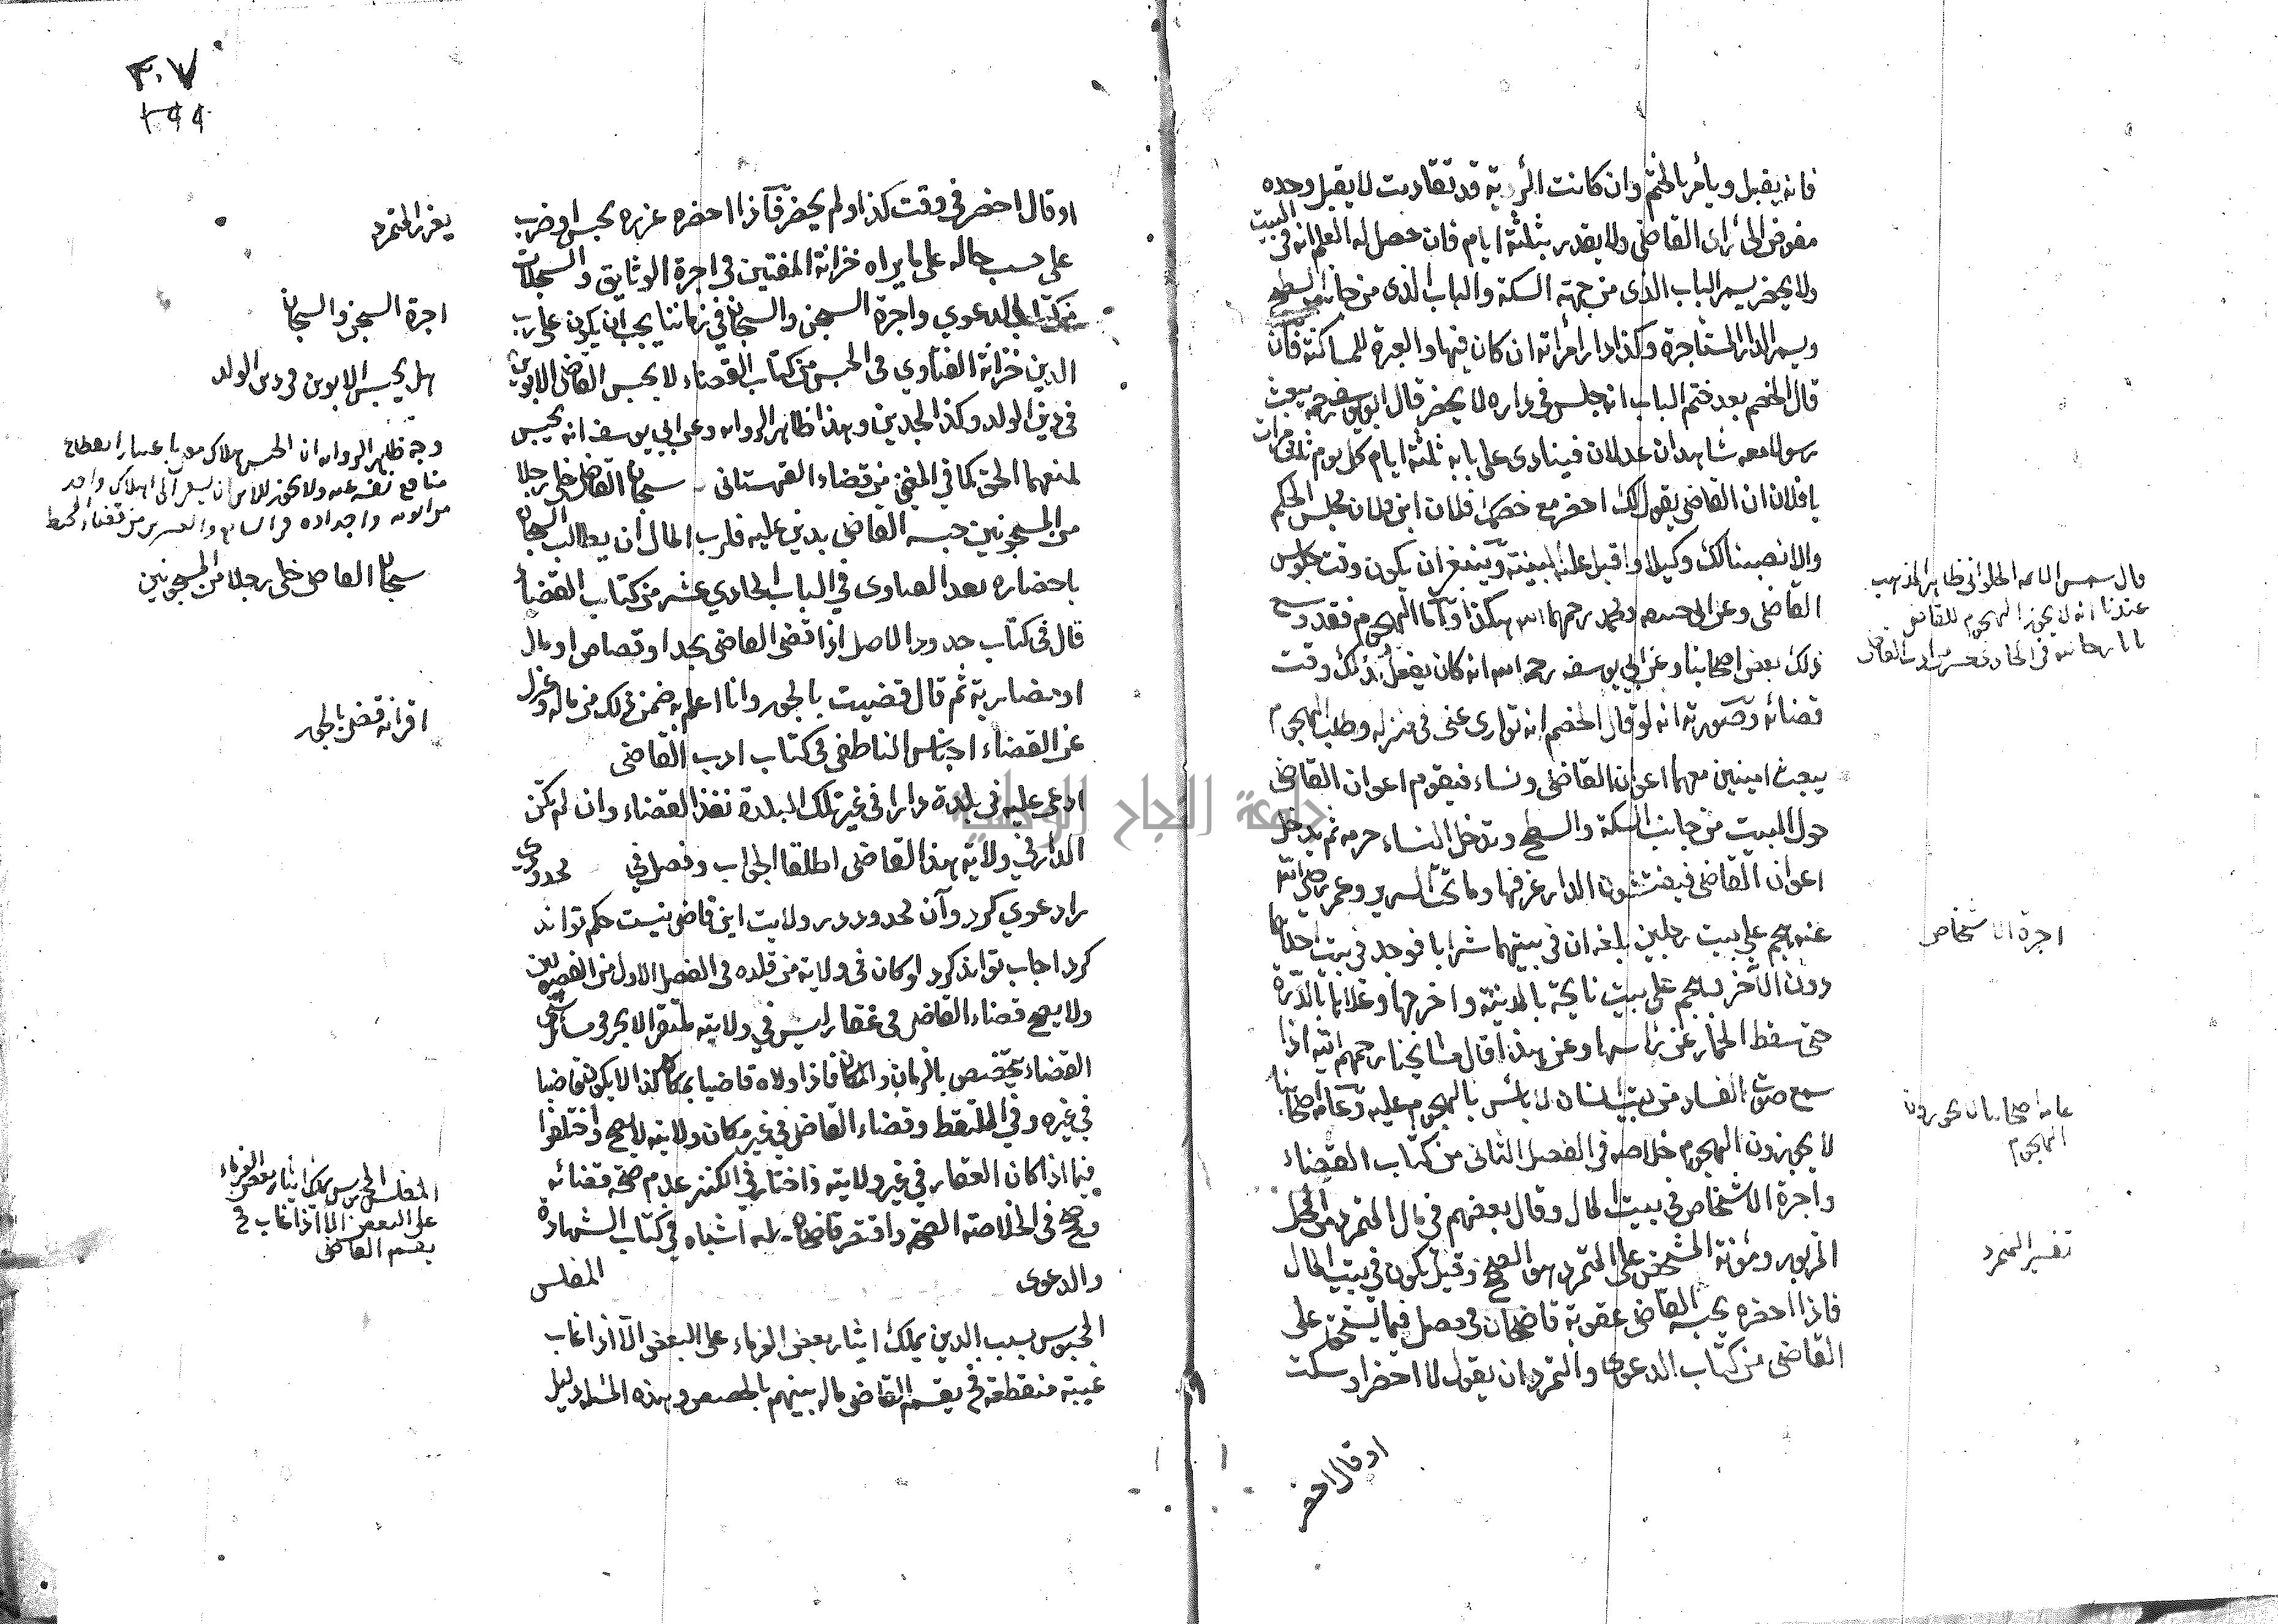 فانه يقبل ويأمر بالختم وان كانت الرؤية قد تقادمت لا يقبل وحده
مفوض الى رأى القاضى ولا يقدر بثلثة ايام فان حصل له العلم انه فى البيت
ولا يحضر يسمر الباب الذى من جهة السكة والباب الذى من جانب السطح
ويسمر الدار المستاجرة وكذا دار امرأته ان كان فيها والعبرة للمساكنة فان
قال الخصم بعد ختم الباب انه جلس فى داره لا يحضر قال ابو يوسف رحمه يبعث
رسولا معه شاهدان عدلان فينادى على بابه ثلثة ايام كل يوم ثلث مرات
يا فلان ان القاضى يقول لك احضر مع خصمك فلان ابن فلان مجلس الحكم
والا نصبنا لك وكيلا واقبل عليه البينة وينبغى ان يكون وقت جلوس
القاضى وعن ابى حنيفه ومحمد رحمهما الله هكذا واما الهجوم فقد وسع
ذلك بعض اصحابنا وعن ابى يوسف رحمه الله انه كان يفعل ذلك وقت
قضائه وصورته انه لو قال الخصم انه توارى عنى فى منزله وطلب الهجوم
يبعث امينين معهما اعوان القاضى ونساء فيقوم اعوان القاضى
حول البيت من جانب السكة والسطح وتدخل النساء حرمه ثم يدخل
اعوان القاضى فيفتشون الدار غرفها وما تحت السرير وعمر رضى الله
عنه هجم على بيت رجلين بلغه ان فى بيتهما شرابا فوجد فى بيت احدهما
دون الآخر وهجم على بيت نايحة بالمدينة واخرجها وعلاها بالدرة
حتى سقط الخمار عن رأسها وعن هذا قال مشايخنا رحمهم الله اذا
سمع صوت الفساد من بيت انسان لا بأس بالهجوم عليه وعامة اصحابنا
لا يجوزون الهجوم خلاصه فى الفصل الثانى من كتاب القضاء
واجرة الاشخاص فى بيت المال وقال بعضهم فى مال المتمرد من المحل
المزبور ومؤنة المشخص على المتمرد هو الصحيح وقيل يكون فى بيت المال
فاذا احضره يحبسه القاضى عقوبة قاضيخان فى فصل فيما يستحق على
القاضى من كتاب الدعوى والتمرد ان يقول لا احضر او سكت
او قال احضر
قال شمس الائمه الحلوانى ظاهر المذهب
عندنا انه لا يجوز الهجوم للقاضى
اجرة الاشخاص
عامة اصحابنا لا يجوزون
الهجوم
تفسير المتمرد
٣٠٧
٢٩٩
او قال احضر فى وقت كذا ولم يحضر فاذا احضره عزره بحبس او ضرب
على حسب حاله على ما يراه خزانة المفتين فى اجرة الوثايق والسجلات
من كتاب الدعوي واجرة السجن والسجان فى زماننا يجب ان يكون على رب
الدين خزانة الفتاوي فى الحبس من كتاب القضاء لا يحبس القاضى الابوين
فى دين الولد وكذا الجدين وهذا ظاهر الروايه وعن ابي يوسف انه يحبس
لمنعهما الحق كما في المغنى من قضاء القهستانى سجان القاضى خلى رجلا
من المسجونين حبسه القاضى بدين عليه فلرب المال ان يطالب السجان
باحضاره فى الباب الحادي عشر من كتاب القضا
قال فى كتاب حدود الاصل اذا قضى القاضى بحد او قصاص او مال
او مضاربة ثم قال قضيت بالجور وانا اعلم به ضمن ذلك من ماله وعزل
عن القضاء اجناس الناطفى فى كتاب ادب القاضى
ادعى عليه فى بلدة دارا فى غير تلك البلدة نفذ القضاء وان لم تكن
الدار في ولاية هذا القاضى اطلقا الجواب وفصل في محدودى
را دعوي كرد وآن محدود در ولايت اين قاضى نيست حكم تواند
كرد اجاب تواند كرد لو كان فى ولاية من قلده فى الفصل الاول من الفصولين
ولا يصح قضاء القاضى فى عقار ليس في ولايته ملتقى الابحر فى مسائل شتى
القضاء يتخصص بالزمان والمكان فاذا ولاه قاضيا بمكان كذا لا يكون قاضيا
فى غيره وفي الملتقط وقضاء القاضى في غير مكان ولايته لا يصح واختلفوا
فيما اذا كان العقار في غير ولايته فاختار في الكنز عدم صحة قضائه
وصح فى الخلاصة الصحة واقتصر قاضيخان عليه اشباه في كتاب الشهادة
والدعوى المفلس
المحبوس بسبب الدين يملك ايثار بعض الغرماء على البعض الا اذا غاب
غيبة منقطعة فح يقسم القاضى ماله بينهم بالحصص وهذه المسئلة دليل
يعزر المتمرد
اجرة السجن والسجان
هل يحبس الابوين فى دين الولد
وجه ظاهر الروايه ان الحبس اهلاك معنى باعتبار انقطاع
منافع نفسه عنه ولا يجوز للابن ان يسعى الى اهلاك واحد
سجان القاضى خلى رجلا من المسجونين
اقر انه قضى بالجور
المفلس المحبوس يملك ايثار بعض الغرماء
على البعض الا اذا غاب فح
يقسم القاضى
جامعة النجاح الوطنية